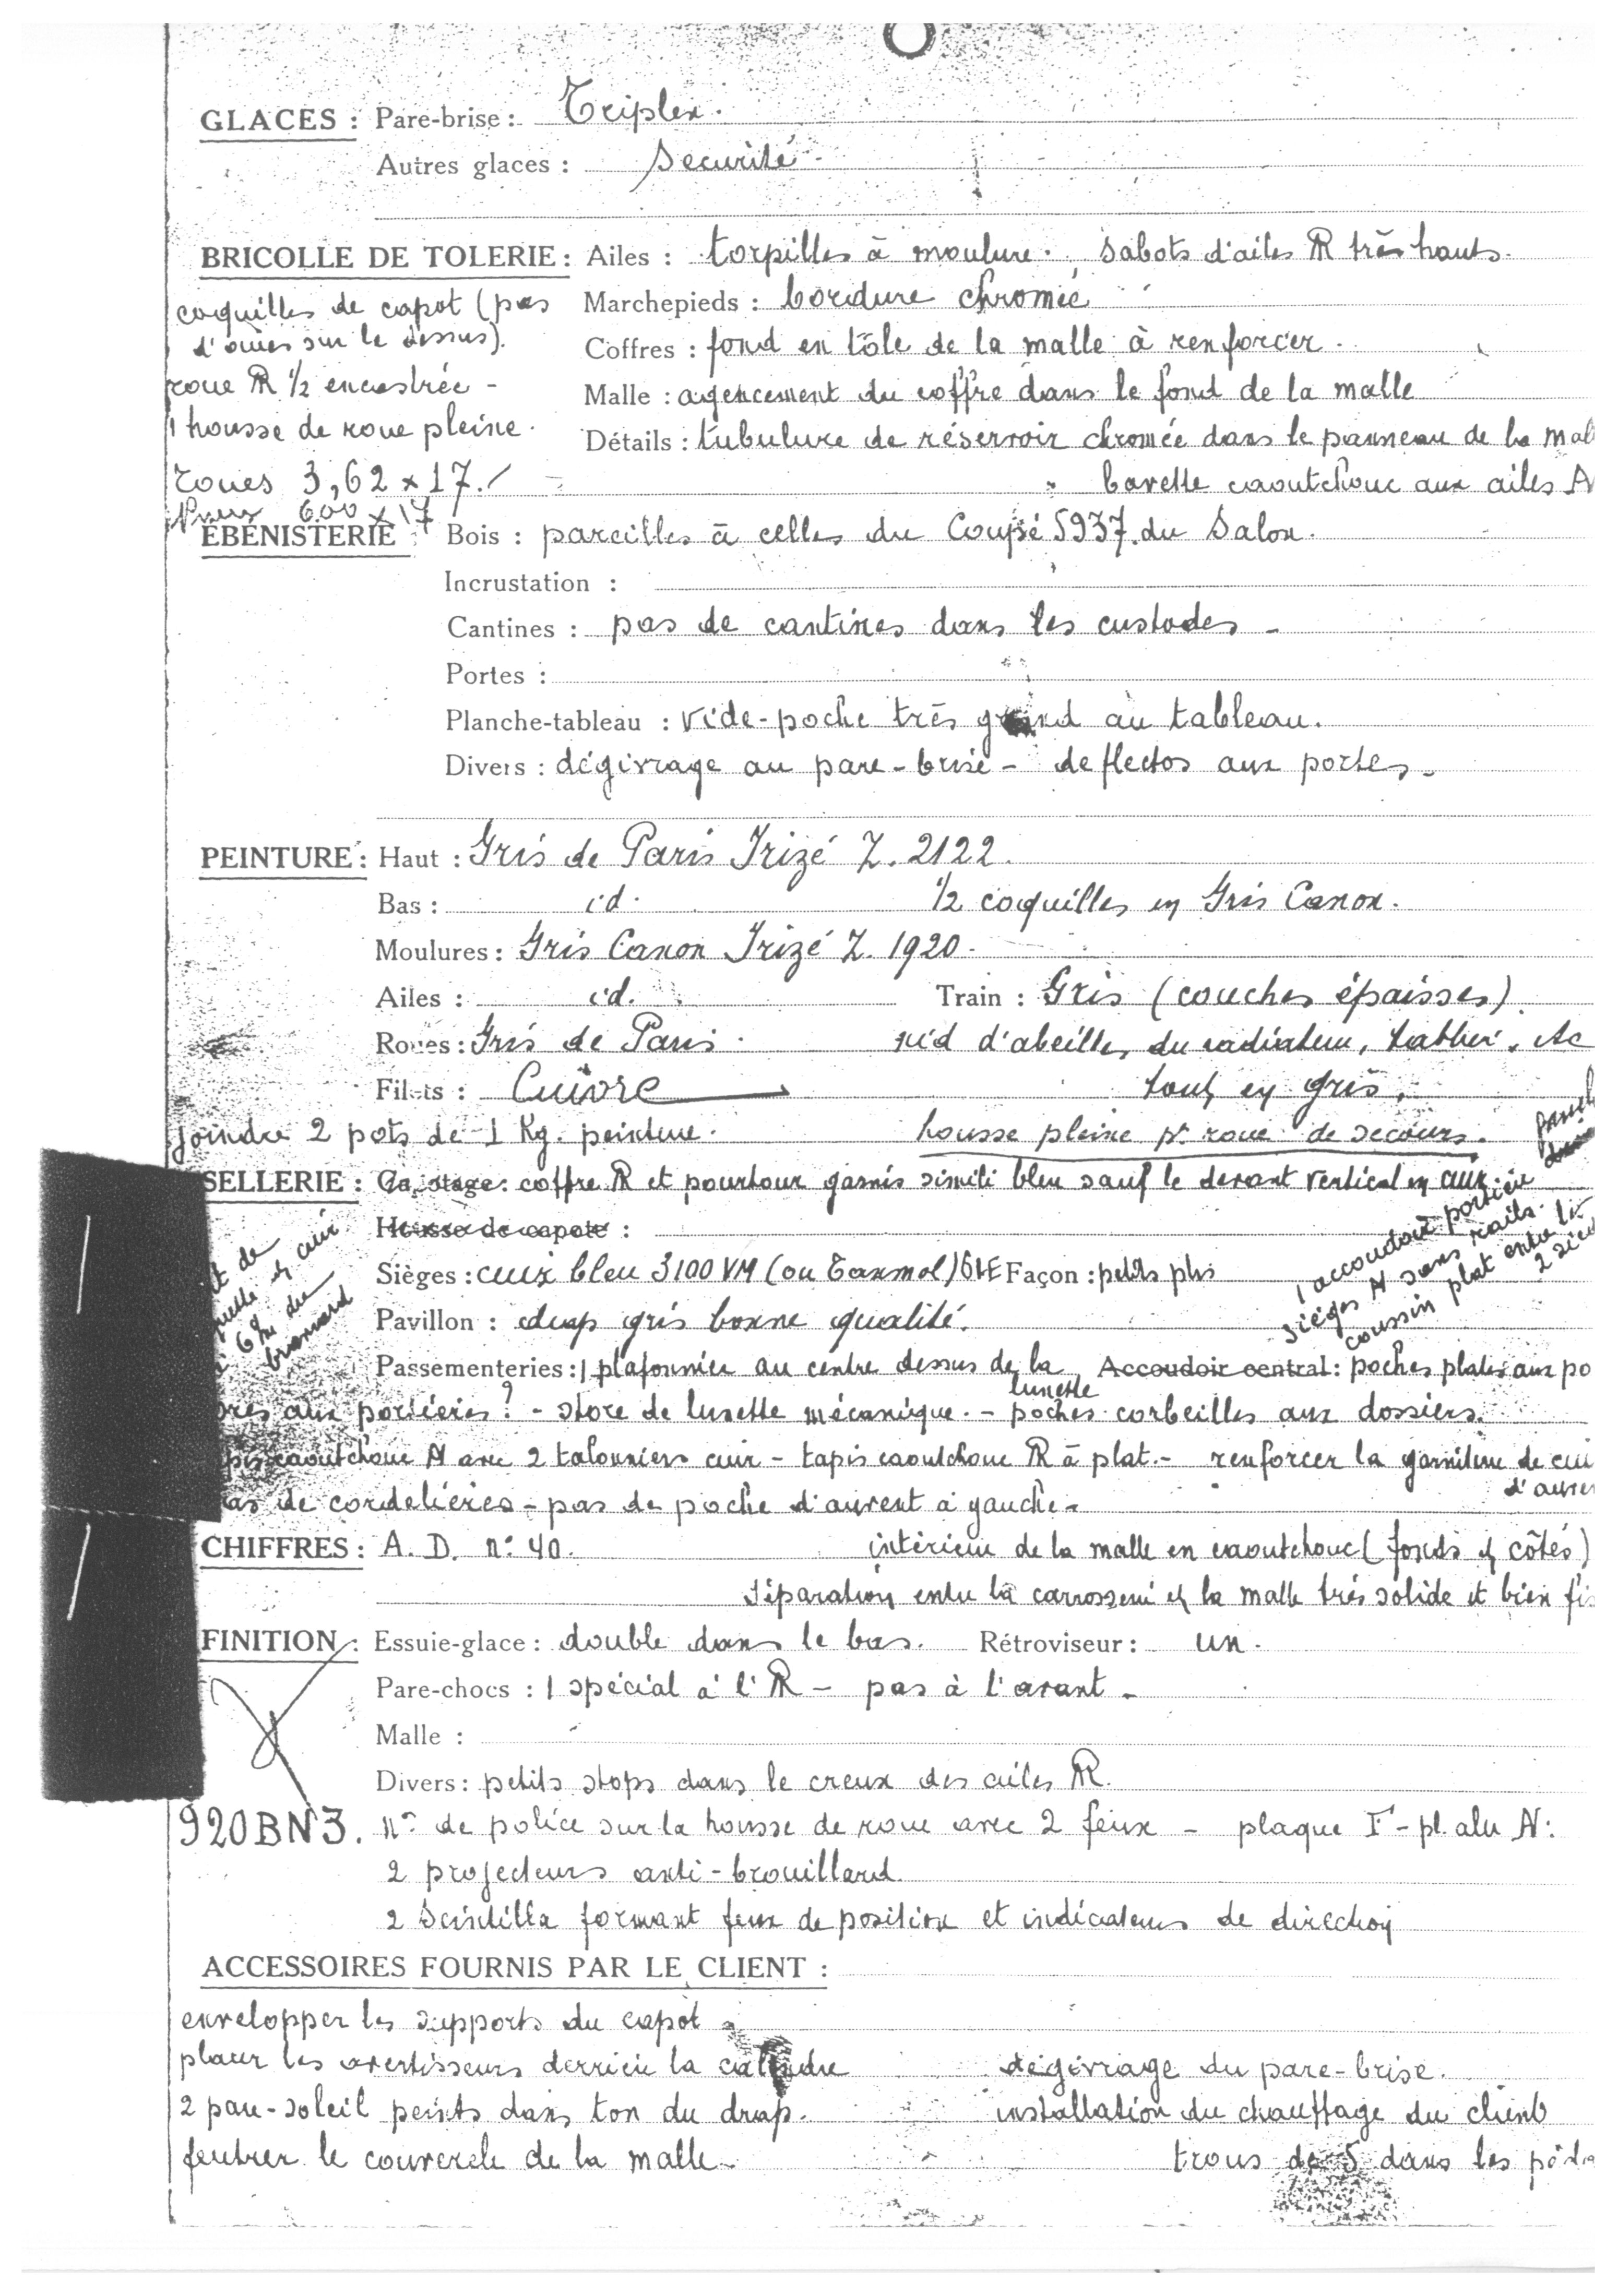 GLACES : Pare-brise : Triplex.
Autres glaces : Securité.
BRICOLLE DE TOLERIE : Ailes : torpilles à moulure. Sabots d'ailes AR très hauts.
coquilles de capot (pas Marchepieds : bordure chromée
d'ouïes sur le dessus). Coffres : fond en tôle de la malle à renforcer.
roue AR 1/2 encastrée - Malle : agencement du coffre dans le fond de la malle
1 housse de roue pleine. Détails : tubulure de réservoir chromée dans le panneau de la mal
roues 3,62 x 17. bavette caoutchouc aux ailes A
Pneux 600 x 17
ÉBÉNISTERIE : Bois : pareilles à celles du Coupé 5937 du Salon.
Incrustation :
Cantines : pas de cantines dans les custodes -
Portes :
Planche-tableau : vide-poche très grand au tableau.
Divers : dégivrage au pare-brise - deflectos aux portes -
PEINTURE : Haut : Gris de Paris Irizé Z. 2122.
Bas : id. 1/2 coquilles en Gris Canon.
Moulures : Gris Canon Irizé Z. 1920.
Ailes : id. Train : Gris (couches épaisses).
Roues : Gris de Paris. nid d'abeilles du radiateur, tablier, etc
Filets : Cuivre tout en gris.
Joindre 2 pots de 1 Kg. peinture. housse pleine pr roue de secours.
SELLERIE : coffre AR et pourtour garnis simili bleu sauf le devant vertical en cuir.
Housse de capote :
1 accoudoir portière
sièges AV sans rails.
coussin plat entre les
2 siè
Sièges : cuir bleu 3100 VM (ou Tanmol) GLE Façon : petits plis
Pavillon : drap gris bonne qualité.
Passementeries : 1 plafonnier au centre dessus de la lunette Accoudoir central : poches plates aux po
aux portières ? - store de lunette mécanique. - poches corbeilles aux dossiers.
caoutchouc AV avec 2 talonniers cuir - tapis caoutchouc AR à plat. - renforcer la garniture de cui
d'auve
de cordelières - pas de poche d'auvent à gauche -
CHIFFRES : A. D. n° 40. intérieur de la malle en caoutchouc (fonds et côtés)
Séparation entre la carrosserie et la malle très solide et bien fi
FINITION : Essuie-glace : double dans le bas. Rétroviseur : un.
Pare-chocs : 1 spécial à l'AR - pas à l'avant -
Malle :
Divers : petits stops dans le creux des ailes AR.
920BN3. n° de police sur la housse de roue avec 2 feux - plaque F - pl. alu AV :
2 projecteurs anti-brouillard.
2 Scintilla formant feux de position et indicateurs de direction
ACCESSOIRES FOURNIS PAR LE CLIENT :
envelopper les supports du capot -
placer les avertisseurs derrière la calandre dégivrage du pare-brise.
2 pare-soleil peints dans ton du drap. installation du chauffage du client
feutrer le couvercle de la malle - trous de 5 dans les péda